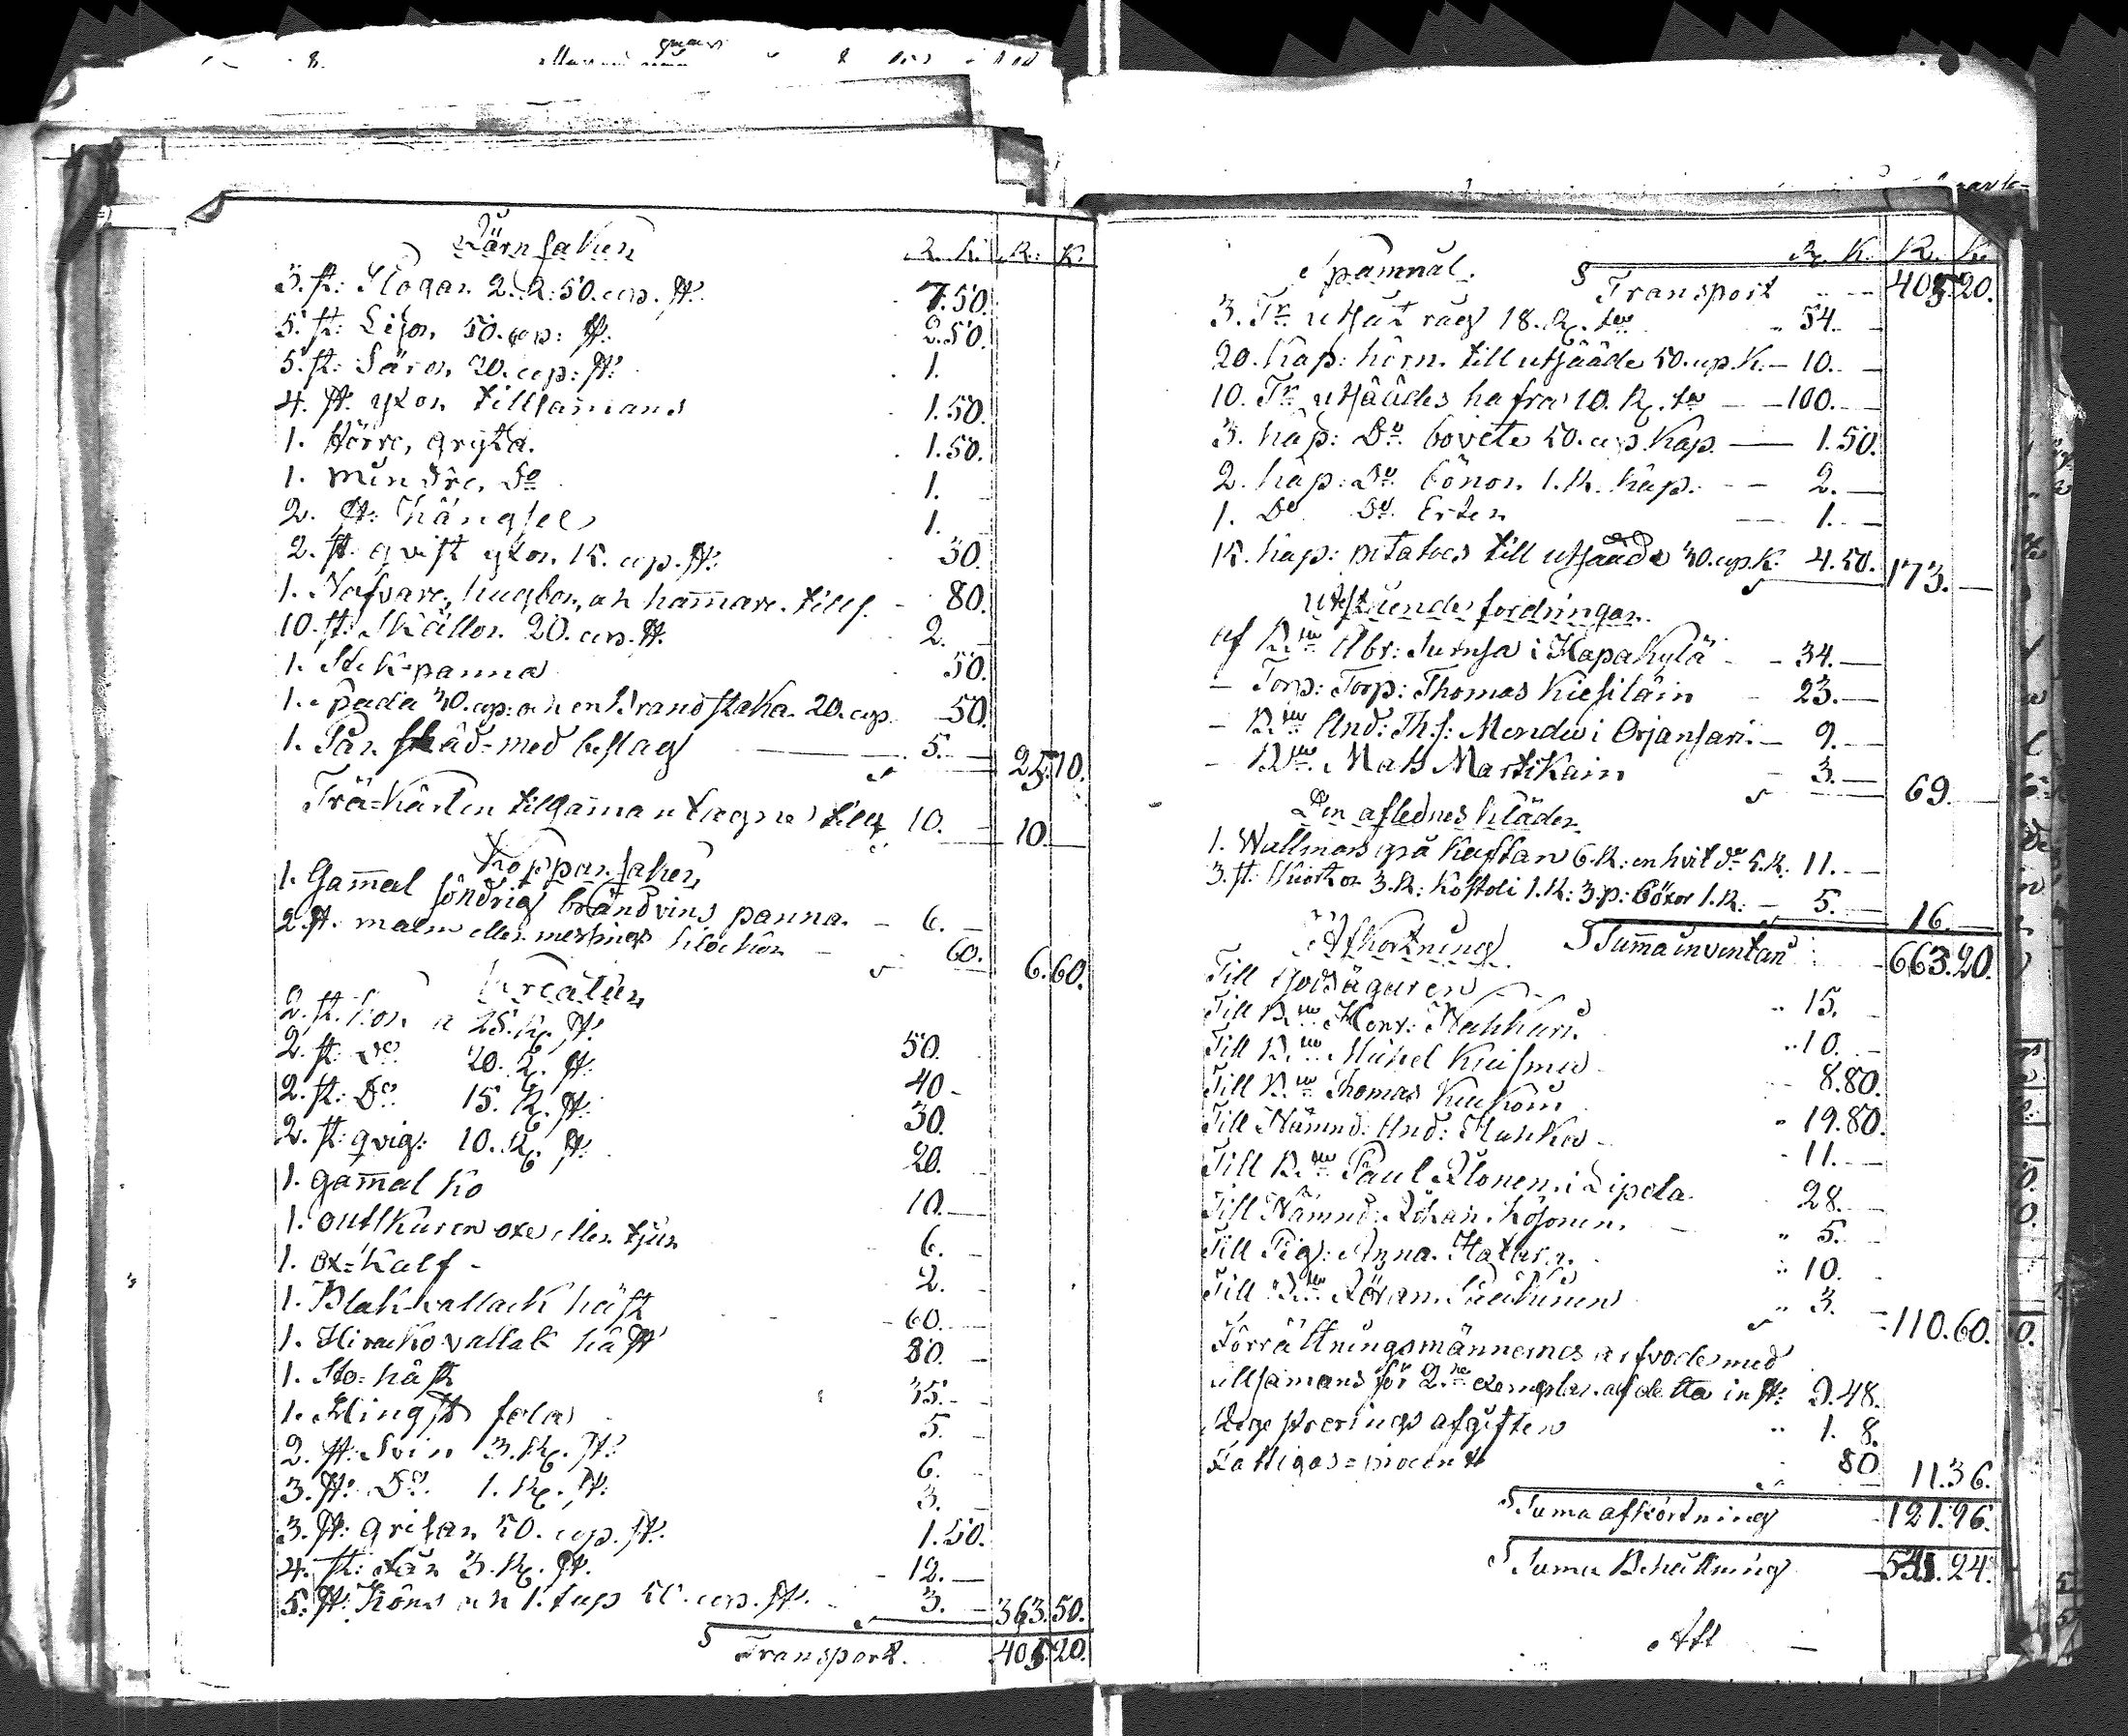 Järnsaker R. K. R. K.
3. st: Plogar 2. R: 50. cop. st: 7.50.
5. st: Lijor 50. cop: st: 2.50.
5. st: Säror 20. cop: st: 1.
4. st. yxor tillsamans 1.50.
1. större, gryta. 1.50.
1. mindre, Do 1.
2. st: hängsel 1.
2. st. qvist yxor 15. cop. st: 30.
1. Nafvare, hugbor, och hammare. tills. 80.
10. st: Skällor 20. cop. st. 2.
1. Stekpanna 50.
1. spada 30. cop: och en brandstaka 20. cop. 50.
1. Par släd-med beslag 5. 25.10.
Trä-kärlen tillsaman tagne till 10. 10.
Kopparsaker
1. Gammal söndrig brändvins panna. 6.
2. st. malm eller messings klockor 60. 6.60.
Kreatur
2. st. kor a 25. R. st: 50.
2. st. Do 20. R. st: 40
2. st: Do 15. R. st: 30.
2. st: qvig: 10. R. st: 20.
1. gammal ko 10.
1. outskuren oxe eller tjur 6.
1. ox-kalf 2.
1. Blak vallack häst 60.
1. Hirvako vallak häst 80.
1. Sto-häst 35.
1. Hingst fola 5.
2. st: Svin 3. R. st: 6.
3. st: Do. 1. R. st: 3.
3. st: grisar 50. cop. st: 1.50.
4. st: får 3. R. st. 12.
5. st: Höns och 1. tup 50. cop. st. 3. 363.50.
Transport. 405.20.
Spanmål. R. K. R. K.
Transport 405.20.
3. Tr utsät råg 18. R. tn 54.
20. kap: korn. till utsääde 50. cop. K. 10.
10. Tr utsäädes hafra 10. R. tn 100.
3. kap: Do bovete 50. cop. Kap. 1.50.
2. kap: Do bönor 1. R. kap. 2.
1. Do Do Erter 1.
15. kap: potatoes till utsääde 30. cop. K: 4.50. 173.
Utestående fordringar
af Bn Abr: Sumsa i Kapakylä 34.
Torp: Torp: Thomas Kiesiläin 23.
Bn And: Th.s: Mendu i Orjansari 9.
Bn Mats Martikain 3. 69.
Den aflednes kläder
1. Wallmans grå kaftan 6. R: en hvit do 5. R. 11.
3. st: skiortor 3. R: 1. R: 3. p: böxor 1. R: 5. 16.
Afkortning Summa inventari 663.20.
Till Jordägaren 15.
Till Bn Henr: 10.
Till Bn Mickel Kuisma 8.80.
Till Bn Thomas 19.80.
Till Nämnd: And: 11.
Till Bn Paul Ilonen i Lipola 28.
Till Nämnd: Johan Kosonen. 5.
Till Pig: Anna 10.
Till Bn Johan 3. 110.60.
Förrättningsmännernes arfvode med
tillsamans för 2ne exemplar af detta inst: 9.48.
Lege Storings afgiften 1. 8.
Fattigas-procent 80 11.36.
Suma afkortning 121.96.
Suma Behållning 541.24.
Att